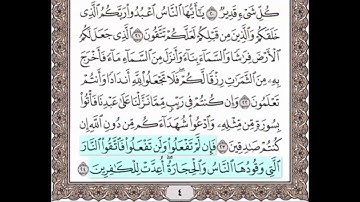 كُلِّ شَىْءٍ قَدِيرٌ ٢٠ يَٰٓأَيُّهَا ٱلنَّاسُ ٱعْبُدُوا۟ رَبَّكُمُ ٱلَّذِى
خَلَقَكُمْ وَٱلَّذِينَ مِن قَبْلِكُمْ لَعَلَّكُمْ تَتَّقُونَ ٢١ ٱلَّذِى جَعَلَ لَكُمُ
ٱلْأَرْضَ فِرَٰشًا وَٱلسَّمَآءَ بِنَآءً وَأَنزَلَ مِنَ ٱلسَّمَآءِ مَآءً فَأَخْرَجَ
بِهِۦ مِنَ ٱلثَّمَرَٰتِ رِزْقًا لَّكُمْ فَلَا تَجْعَلُوا۟ لِلَّهِ أَندَادًا وَأَنتُمْ
تَعْلَمُونَ ٢٢ وَإِن كُنتُمْ فِى رَيْبٍ مِّمَّا نَزَّلْنَا عَلَىٰ عَبْدِنَا فَأْتُوا۟
بِسُورَةٍ مِّن مِّثْلِهِۦ وَٱدْعُوا۟ شُهَدَآءَكُم مِّن دُونِ ٱللَّهِ إِن
كُنتُمْ صَٰدِقِينَ ٢٣ فَإِن لَّمْ تَفْعَلُوا۟ وَلَن تَفْعَلُوا۟ فَٱتَّقُوا۟ ٱلنَّارَ
ٱلَّتِى وَقُودُهَا ٱلنَّاسُ وَٱلْحِجَارَةُ ۖ أُعِدَّتْ لِلْكَٰفِرِينَ ٢٤
٤